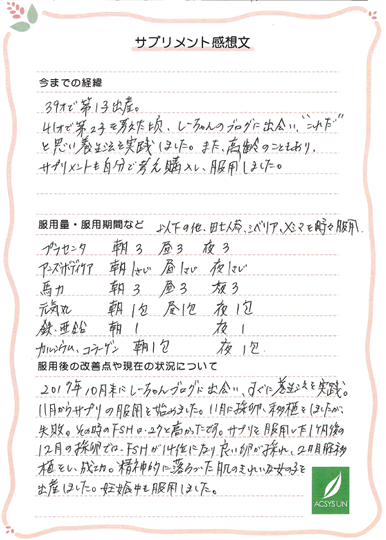 サプリメント感想文
今までの経緯
39才で第1子出産。
41才で第2子を考えた頃、しーちゃんのブログに出会い、"これだ"
と思い養生法を実践しました。また、高齢のこともあり、
サプリメントも自分で考え購入し、服用しました。
服用量・服用期間など
以下の他、田七人参、シベリア、メシマを時々服用
プラセンタ 朝3 昼3 夜3
朝1さじ 昼1さじ 夜1さじ
馬力 朝3 昼3 夜3
元気丸 朝1包 昼1包 夜1包
鉄、亜鉛 朝1 夜1
カルシウム、コラーゲン 朝1包 夜1包
服用後の改善点や現在の状況について
2017年10月末にしーちゃんブログに出会い、すぐに養生法を実践。
11月からサプリの服用を始めました。11月に採卵、移植をしましたが、
失敗。その時のFSHは27と高かったです。サプリを服用した1ヶ月後の
12月の採卵では、FSHが14位になり良い卵が採れ、2月胚移
植をし、成功。精神的に落ちついた肌のきれいな女の子を
出産しました。妊娠中も服用しました。
ACSYSUN